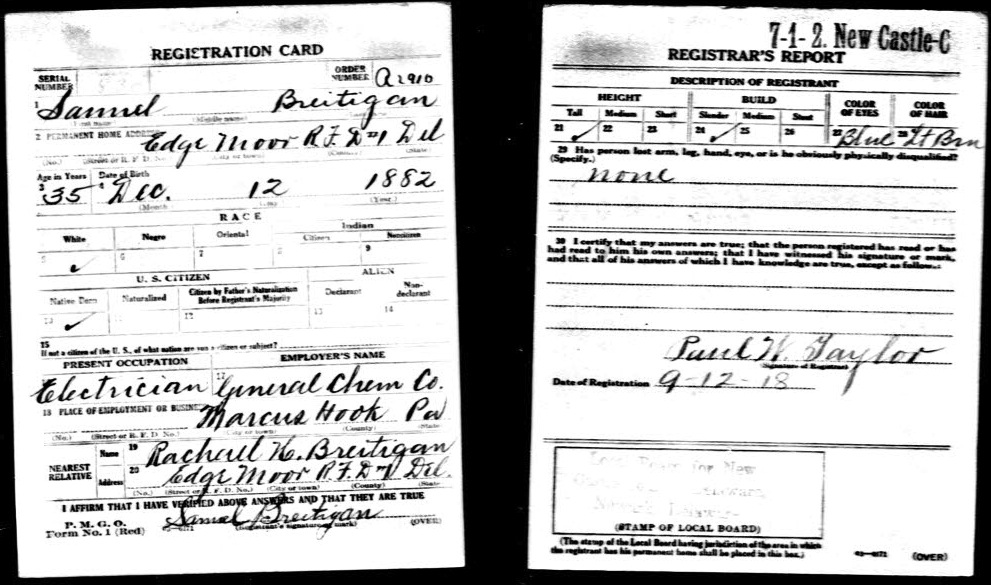 REGISTRATION CARD
SERIAL NUMBER
ORDER NUMBER A2910
1 Samuel Breitigan
(Middle name)
2 PERMANENT HOME ADDRESS
Edge Moor R.F.D #1 Del
(No.) (Street or R. F. D. No.) (City or town) (County) (State)
Age in Years Date of Birth
3 35 4 Dec. 12 1882
(Month) (Day) (Year.)
RACE
White Negro Oriental Indian
Citizen Noncitizen
5 ✓ 6 7 8 9
U. S. CITIZEN ALIEN
Native Born Naturalized Citizen by Father's Naturalization Before Registrant's Majority Declarant Non-declarant
10 ✓ 11 12 13 14
15
If not a citizen of the U. S., of what nation are you a citizen or subject?
PRESENT OCCUPATION EMPLOYER'S NAME
Electrician 17 General Chem Co.
18 PLACE OF EMPLOYMENT OR BUSINESS
Marcus Hook Pa
(No.) (Street or R. F. D. No.) (City or town) (County) (State)
NEAREST RELATIVE
Name 19 Racheel H. Breitigan
Address 20 Edge Moor R.F.D #1 Del.
(No.) (Street or R. F. D. No.) (City or town) (County) (State)
I AFFIRM THAT I HAVE VERIFIED ABOVE ANSWERS AND THAT THEY ARE TRUE
P. M. G. O.
Form No. 1 (Red) 03—6171 Samuel Breitigan
(Registrant's signature or mark) (OVER)
7-1-2. New Castle-C
REGISTRAR'S REPORT
DESCRIPTION OF REGISTRANT
HEIGHT BUILD COLOR OF EYES COLOR OF HAIR
Tall Medium Short Slender Medium Stout
21 ✓ 22 23 24 ✓ 25 26 27 Blue 28 Lt Brn
29 Has person lost arm, leg, hand, eye, or is he obviously physically disqualified?
(Specify.)
none
30 I certify that my answers are true; that the person registered has read or has
had read to him his own answers; that I have witnessed his signature or mark,
and that all of his answers of which I have knowledge are true, except as follows:
Paul W. Taylor
(Signature of Registrar)
Date of Registration 9-12-18
Local Board for New
Delaware
Newark Delaware
(STAMP OF LOCAL BOARD)
(The stamp of the Local Board having jurisdiction of the area in which
the registrant has his permanent home shall be placed in this box.)
03—6171 (OVER)